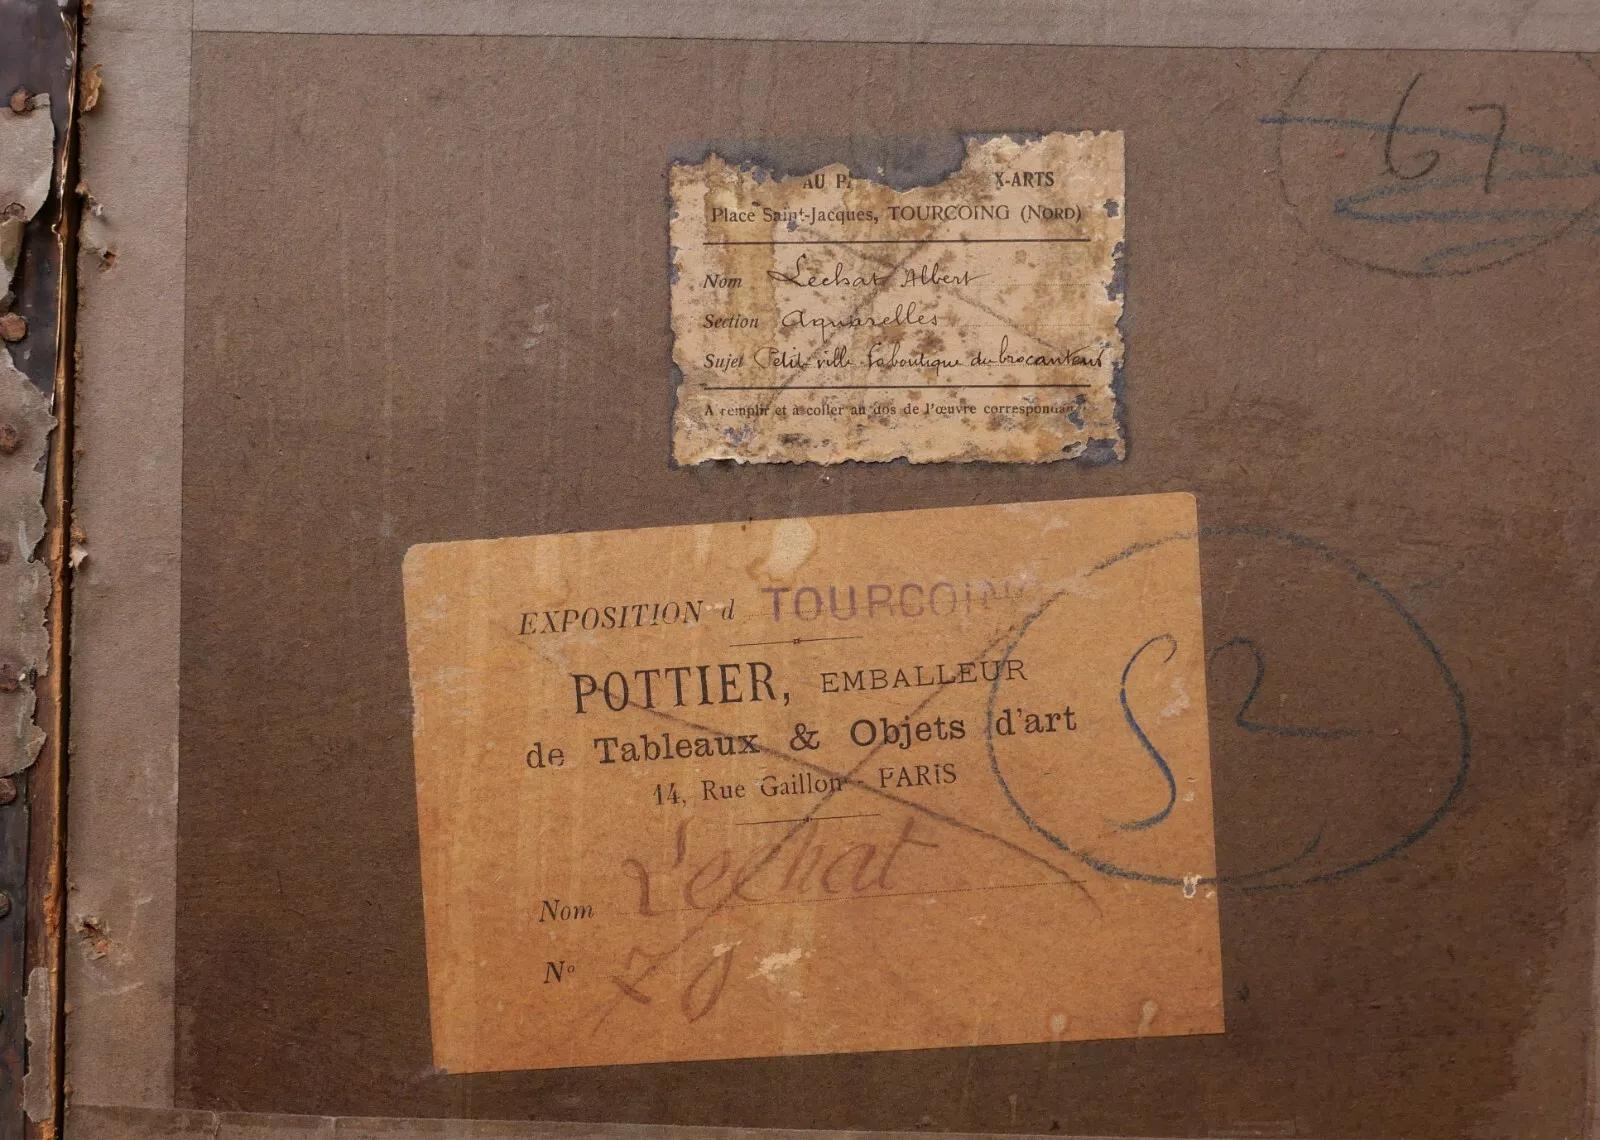 67
AU X-ARTS
Place Saint-Jacques, TOURCOING (NORD)
Nom Lechat Albert
Section Aquarelles
Sujet Petite ville la boutique du brocanteur
A remplir et à coller au dos de l'œuvre correspondan
EXPOSITION d TOURCOING
POTTIER, EMBALLEUR
de Tableaux & Objets d'art
14, Rue Gaillon - PARIS
52
Nom Lechat
N°